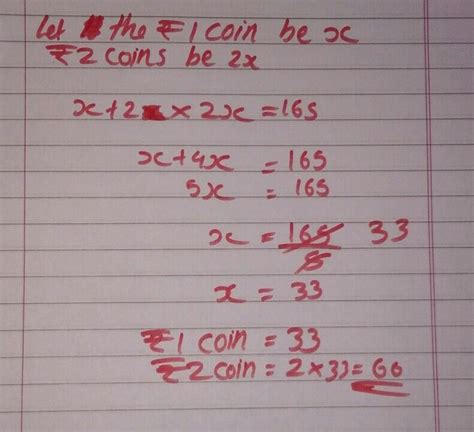 Let the ₹1 coin be x
₹2 coins be 2x
x+2 × 2x = 165
x+4x = 165
5x = 165
x = 165/5 33
x = 33
₹1 coin = 33
₹2 coin = 2×33 = 66